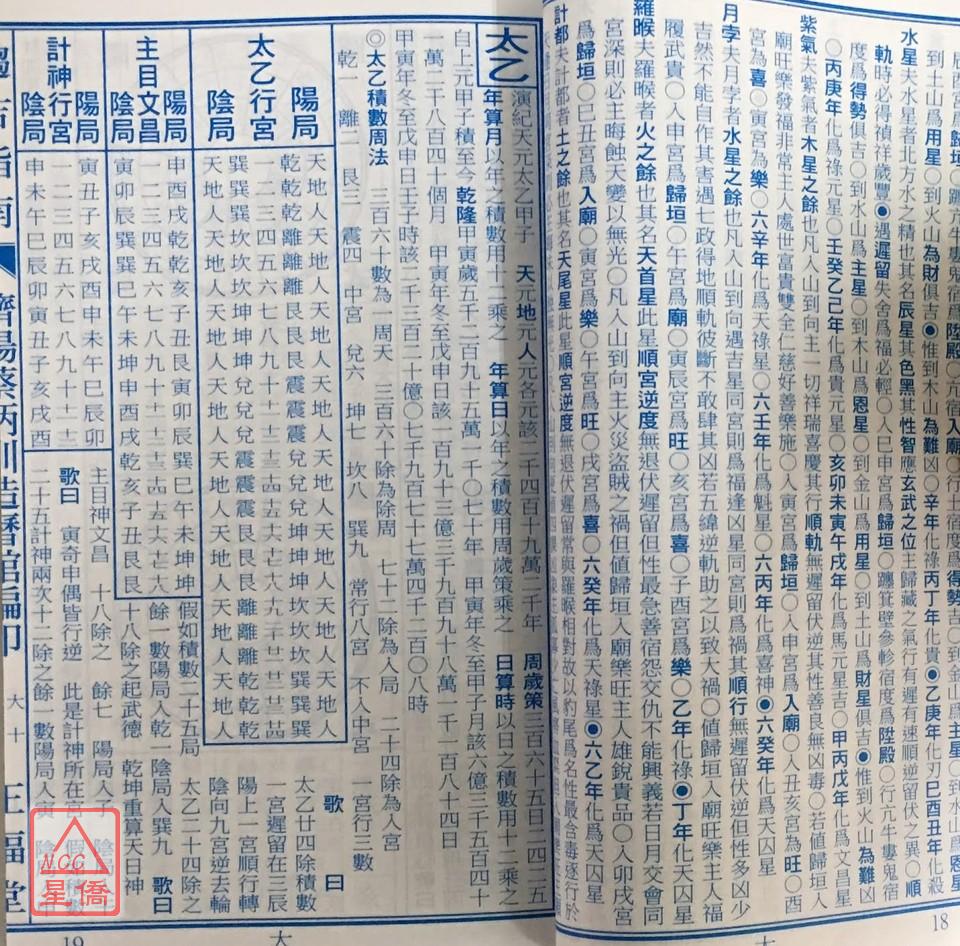 到土山爲用星○到火山爲財俱吉◉惟到木山爲難凶○辛年化祿丙丁年化貴◉乙庚年化刃巳酉丑年化殺
水星夫水星者北方水之精也其名辰星其色黑其性智應玄武之位主歸藏之氣行有遲有速順逆伏之異○順
軌時必得禎祥歲豐◉遇遲留失舍爲福必輕○人巳申宮爲歸垣○躔箕壁參軫宿度爲陞殿○行亢牛婁鬼宿
度爲得勢俱吉○到水山爲主星○到木山爲恩星○到金山爲用星○到土山爲財星俱吉◉惟到火山爲難凶
○丙庚年化爲祿元星○壬癸乙己年化爲貴元星○亥卯未寅午戌年化爲馬元星吉○甲丙戊年化爲文昌星
紫氣夫紫氣者木星之餘也凡人山到向主一切祥瑞喜慶其行順軌無遲留伏逆其性善良無凶毒○若値歸垣入
廟旺樂發福非常主人處世富貴雙全仁慈好善樂施○人寅宮爲歸垣○人申宮爲入廟○人丑亥宮爲旺○酉
宮爲喜○寅宮爲樂○六辛年化爲天祿星○六壬年化爲魁星○六丙年化爲喜神◉六癸年化爲天囚星
月孛夫月孛者水星之餘也凡入山到向遇吉星同宮則爲福逢凶星同宮則爲禍其順行無遲留伏逆但性多凶少
吉然不能自作其害遇七政得地順軌彼斷不敢肆其凶若五緯逆軌助之以致大禍○値歸垣入廟旺樂主人福
履武貴○人申宮爲歸垣○午宮爲廟○寅辰宮爲旺○亥宮爲喜○子酉宮爲樂○乙年化祿◉丁年化天囚星
羅㬋夫羅㬋者火之餘也其名天首星此星順宮逆度無退伏遲留但性最急善宿怨交仇不能興義若日月交會同
宮深則必主晦蝕天變以無光○凡人山到向主火災盜賊之禍但値歸垣入廟樂旺主人雄銳貴品○人卯戌宮
爲歸垣○巳丑宮爲入廟○寅宮爲樂○午宮爲旺○戌宮爲喜○六癸年化爲天祿星◉六乙年化爲天囚星
計都夫計都者土之餘也其名天尾星此星順宮逆度無退伏遲留常與羅㬋相對故以豹尾爲名性最含毒逐行於
18
太乙
演紀天元太乙甲子 天元地元人元各元該二千四百十九萬二千年 周歲策三百六十五日二四二五
年算月以年之積數用十二乘之 年算日以年之積數用周歲策乘之 日算時以日之積數用十二乘之
自上元甲子積至今乾隆甲寅歲五千二百九十五萬一千○七十年 甲寅年冬至甲子月該六億三千五百四十
一萬二千八百四十個月 甲寅年冬至戊申日該一百九十三億三千九百九十八萬一千一百八十四日
甲寅年冬至戊申日壬子時該二千三百二十億○七千九百七十七萬四千二百○八時
◎太乙積數周法 三百六十數為一周天 三百六十除為周 七十二除為入局 二十四除為人宮
乾一 離二 艮三 震四 中宮 兌六 坤七 坎八 巽九 常行八宮 不入中宮 一宮行三數
太乙行宮
陽局
陰局
天地人天地人天地人天地人天地人天地人天地人天地人
乾乾乾離離離艮艮艮震震震兌兌兌坤坤坤坎坎坎巽巽巽
巽巽巽坎坎坎坤坤坤兌兌兌震震震艮艮艮離離離乾乾乾
天地人天地人天地人天地人天地人天地人天地人天地人
歌曰
太乙廿四除積數
一宮遲留在三辰
陽上一宮順行轉
陰向九宮逆去輪
太乙二十四除之
主目文昌
陽局
陰局
申酉戌乾乾亥子丑艮寅卯辰巽巳午未坤坤
寅卯辰巽巽巳午未坤申酉戌乾亥子丑艮艮
假如積數二十五局
餘一數陽局人乾一陰局入巽九 歌曰
十八除之起武德 乾坤重算天目神
主目神文昌 十八除之 餘七 陽局人子
計神行宮
陽局
陰局
寅丑子亥戌酉申未午巳辰卯
申未午巳辰卯寅丑子亥戌酉
歌曰 寅奇申偶皆行逆 此是計神所在宮
二十五計神兩次十二除之餘一數陽局人寅
指南
濟陽蔡炳圳造曆館編印
大十
正福堂
19
NCC
星僑